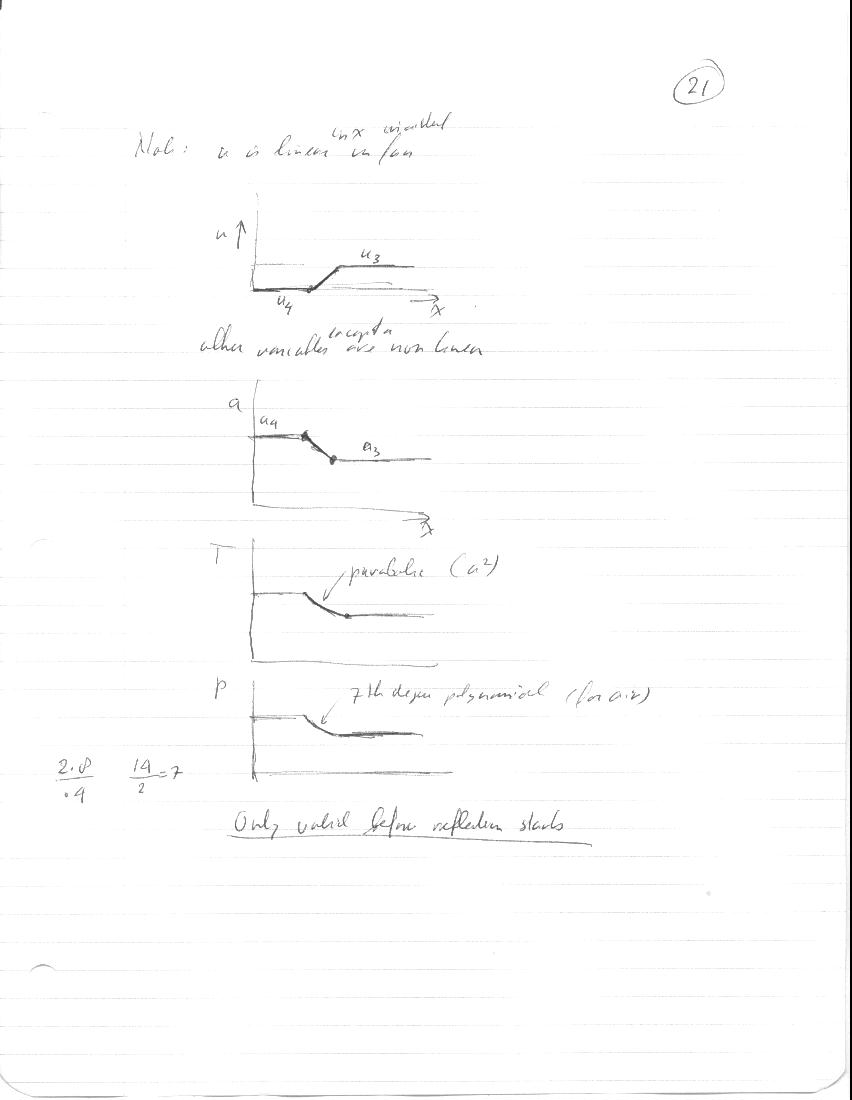 21
in x
u is linear in fan
u ↑
u3
u4
→
x
except a
other variables are non linear
a
a4
a3
→
x
T
parabolic (a²)
P
7th degree polynomial (for air)
2.8/.4 14/2 = 7
Only valid before reflection starts